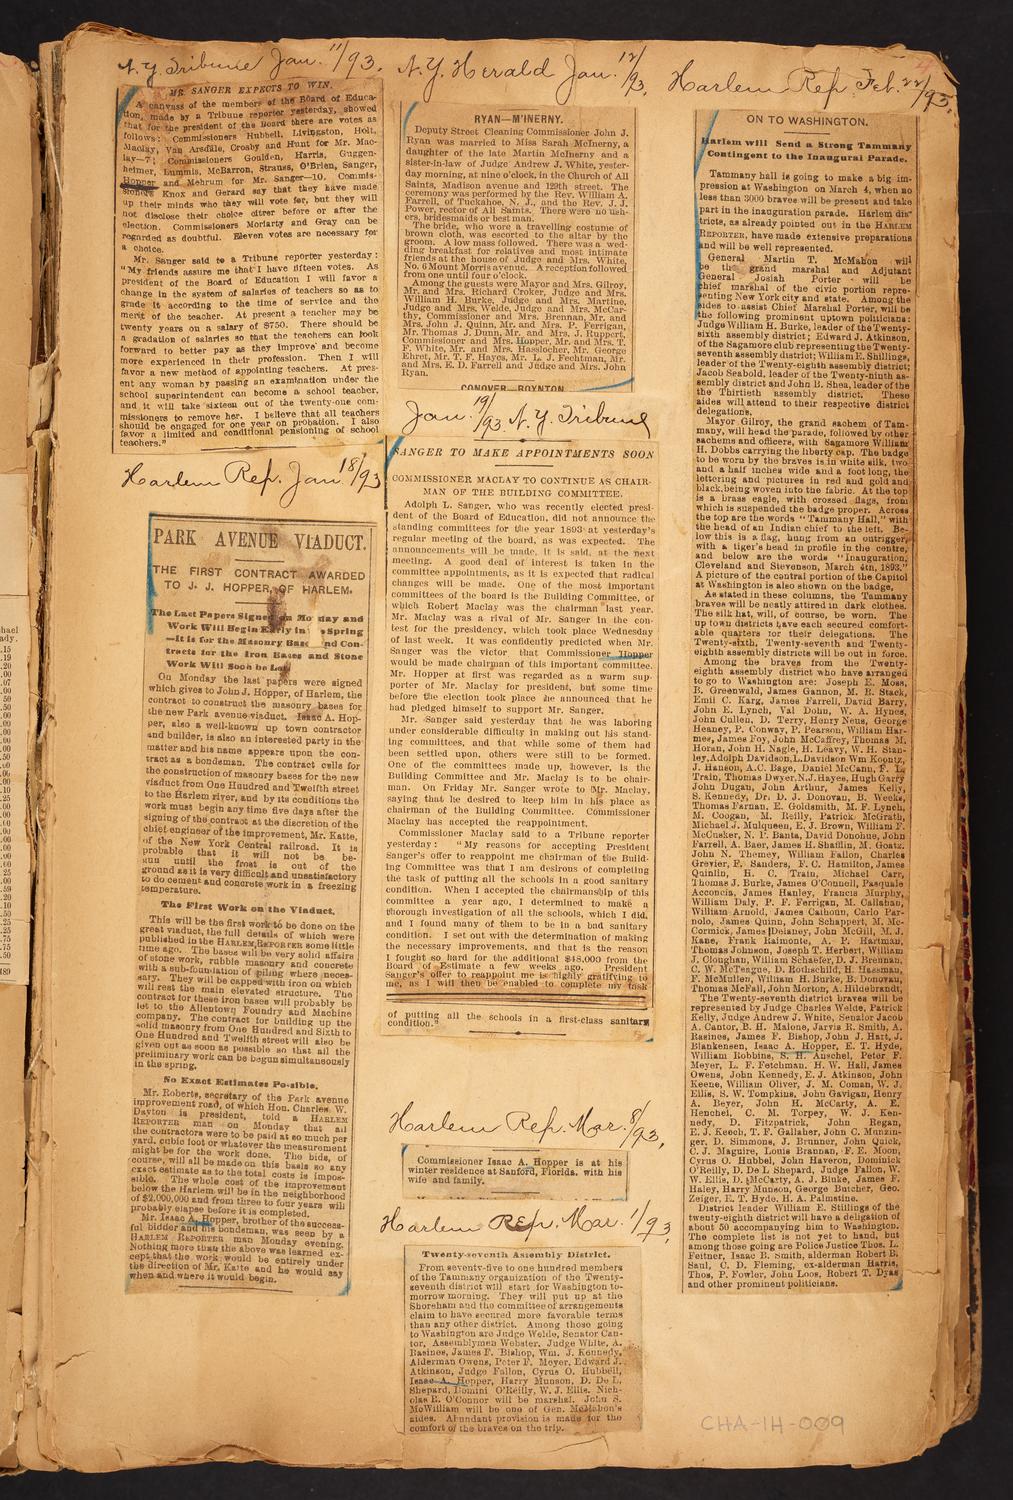 N.Y. Tribune Jan. 11/93.
MR. SANGER EXPECTS TO WIN.
A canvass of the members of the Board of Educa-
tion, made by a Tribune reporter yesterday, showed
that for the president of the Board there are votes as
follows: Commissioners Hubbell, Livingston, Holt,
Maclay, Van Arsdale, Crosby and Hunt for Mr. Mac-
lay—7; Commissioners Goulden, Harris, Guggen-
heimer, Lummis, McBarron, Strauss, O'Brien, Sanger,
Hopper and Mehrum for Mr. Sanger—10. Commis-
sioners Knox and Gerard say that they have made
up their minds who they will vote for, but they will
not disclose their choice either before or after the
election. Commissioners Moriarty and Gray can be
regarded as doubtful. Eleven votes are necessary for
a choice.
Mr. Sanger said to a Tribune reporter yesterday:
"My friends assure me that I have fifteen votes. As
president of the Board of Education I will favor a
change in the system of salaries of teachers so as to
grade it according to the time of service and the
merit of the teacher. At present a teacher may be
twenty years on a salary of $750. There should be
a gradation of salaries so that the teachers can look
forward to better pay as they improve and become
more experienced in their profession. Then I will
favor a new method of appointing teachers. At pres-
ent any woman by passing an examination under the
school superintendent can become a school teacher,
and it will take sixteen out of the twenty-one com-
missioners to remove her. I believe that all teachers
should be engaged for one year on probation. I also
favor a limited and conditional pensioning of school
teachers."
Harlem Rep. Jan. 18/93
PARK AVENUE VIADUCT.
THE FIRST CONTRACT AWARDED
TO J. J. HOPPER, OF HARLEM.
The Last Papers Signed on Monday and
Work Will Begin Early in Spring
—It is for the Masonry Bases and Con-
tracts for the Iron Bases and Stone
Work Will Soon be Let.
On Monday the last papers were signed
which gives to John J. Hopper, of Harlem, the
contract to construct the masonry bases for
the new Park avenue viaduct. Isaac A. Hop-
per, also a well-known up town contractor
and builder, is also an interested party in the
matter and his name appears upon the con-
tract as a bondsman. The contract calls for
the construction of masonry bases for the new
viaduct from One Hundred and Twelfth street
to the Harlem river, and by its conditions the
work must begin any time five days after the
signing of the contract at the discretion of the
chief engineer of the improvement, Mr. Katte,
of the New York Central railroad. It is
probable that it will not be be-
gun until the frost is out of the
ground as it is very difficult and unsatisfactory
to do cement and concrete work in a freezing
temperature.
The First Work on the Viaduct.
This will be the first work to be done on the
great viaduct, the full details of which were
published in the HARLEM REPORTER some little
time ago. The bases will be very solid affairs
of stone work, rubble masonry and concrete
with a sub-foundation of piling where neces-
sary. They will be capped with iron on which
will rest the main elevated structure. The
contract for these iron bases will probably be
let to the Allentown Foundry and Machine
company. The contract for building up the
solid masonry from One Hundred and Sixth to
One Hundred and Twelfth street will also be
given out as soon as possible so that all the
preliminary work can be begun simultaneously
in the spring.
No Exact Estimates Possible.
Mr. Roberts, secretary of the Park avenue
improvement road, of which Hon. Charles W.
Dayton is president, told a HARLEM
REPORTER man on Monday that all
the contractors were to be paid at so much per
yard, cubic foot or whatever the measurement
might be for the work done. The bids, of
course, will all be made on this basis so any
exact estimate as to the total costs is impos-
sible. The whole cost of the improvement
below the Harlem will be in the neighborhood
of $2,000,000 and from three to four years will
probably elapse before it is completed.
Mr. Isaac A. Hopper, brother of the success-
ful bidder and his bondsman, was seen by a
HARLEM REPORTER man Monday evening.
Nothing more than the above was learned ex-
cept that the work would be entirely under
the direction of Mr. Katte and he would say
when and where it would begin.
N.Y. Herald Jan. 12/93.
RYAN—M'INERNY.
Deputy Street Cleaning Commissioner John J.
Ryan was married to Miss Sarah McInerny, a
daughter of the late Martin McInerny and a
sister-in-law of Judge Andrew J. White, yester-
day morning, at nine o'clock, in the Church of All
Saints, Madison avenue and 129th street. The
ceremony was performed by the Rev. William A.
Farrell, of Tuckahoe, N. J., and the Rev. J. J.
Power, rector of All Saints. There were no ush-
ers, bridesmaids or best man.
The bride, who wore a travelling costume of
brown cloth, was escorted to the altar by the
groom. A low mass followed. There was a wed-
ding breakfast for relatives and most intimate
friends at the house of Judge and Mrs. White,
No. 6 Mount Morris avenue. A reception followed
from one until four o'clock.
Among the guests were Mayor and Mrs. Gilroy,
Mr. and Mrs. Richard Croker, Judge and Mrs.
William H. Burke, Judge and Mrs. Martine,
Judge and Mrs. Welde, Judge and Mrs. McCar-
thy, Commissioner and Mrs. Brennan, Mr. and
Mrs. John J. Quinn, Mr. and Mrs. P. Ferrigan,
Mr. Thomas J. Dunn, Mr. and Mrs. J. Ruppert,
Commissioner and Mrs. Hopper, Mr. and Mrs. T.
F. White, Mr. and Mrs. Hasslocher, Mr. George
Ehret, Mr. T. F. Hayes, Mr. L. J. Fechtman, Mr.
and Mrs. E. D. Farrell and Judge and Mrs. John
Ryan.
CONOVER—BOYNTON
Jan. 19/93. N.Y. Tribune
SANGER TO MAKE APPOINTMENTS SOON
COMMISSIONER MACLAY TO CONTINUE AS CHAIR-
MAN OF THE BUILDING COMMITTEE.
Adolph L. Sanger, who was recently elected presi-
dent of the Board of Education, did not announce the
standing committees for the year 1893 at yesterday's
regular meeting of the board, as was expected. The
announcements will be made, it is said, at the next
meeting. A good deal of interest is taken in the
committee appointments, as it is expected that radical
changes will be made. One of the most important
committees of the board is the Building Committee, of
which Robert Maclay was the chairman last year.
Mr. Maclay was a rival of Mr. Sanger in the con-
test for the presidency, which took place Wednesday
of last week. It was confidently predicted when Mr.
Sanger was the victor that Commissioner Hopper
would be made chairman of this important committee.
Mr. Hopper at first was regarded as a warm sup-
porter of Mr. Maclay for president, but some time
before the election took place he announced that he
had pledged himself to support Mr. Sanger.
Mr. Sanger said yesterday that he was laboring
under considerable difficulty in making out his stand-
ing committees, and that while some of them had
been settled upon, others were still to be formed.
One of the committees made up, however, is the
Building Committee and Mr. Maclay is to be chair-
man. On Friday Mr. Sanger wrote to Mr. Maclay,
saying that he desired to keep him in his place as
chairman of the Building Committee. Commissioner
Maclay has accepted the reappointment.
Commissioner Maclay said to a Tribune reporter
yesterday: "My reasons for accepting President
Sanger's offer to reappoint me chairman of the Build-
ing Committee was that I am desirous of completing
the task of putting all the schools in a good sanitary
condition. When I accepted the chairmanship of this
committee a year ago, I determined to make a
thorough investigation of all the schools, which I did,
and I found many of them to be in a bad sanitary
condition. I set out with the determination of making
the necessary improvements, and that is the reason
I fought so hard for the additional $48,000 from the
Board of Estimate a few weeks ago. President
Sanger's offer to reappoint me is highly gratifying to
me, as I will then be enabled to complete my task
of putting all the schools in a first-class sanitary
condition."
Harlem Rep. Mar. 8/93,
Commissioner Isaac A. Hopper is at his
winter residence at Sanford, Florida, with his
wife and family.
Harlem Rep. Mar. 1/93,
Twenty-seventh Assembly District.
From seventy-five to one hundred members
of the Tammany organization of the Twenty-
seventh district will start for Washington to-
morrow morning. They will put up at the
Shoreham and the committee of arrangements
claim to have secured more favorable terms
than any other district. Among those going
to Washington are Judge Welde, Senator Can-
tor, Assemblymen Webster, Judge White, A.
Rasines, James F. Bishop, Wm. J. Kennedy,
Alderman Owens, Peter F. Meyer, Edward J.
Atkinson, Judge Fallon, Cyrus O. Hubbell,
Isaac A. Hopper, Harry Munson, D. De L.
Shepard, Domini O'Reilly, W. J. Ellis. Nich-
olas R. O'Connor will be marshal. John S.
McWilliam will be one of Gen. McMahon's
aides. Abundant provision is made for the
comfort of the braves on the trip.
Harlem Rep. Feb. 22/93,
ON TO WASHINGTON.
Harlem will Send a Strong Tammany
Contingent to the Inaugural Parade.
Tammany hall is going to make a big im-
pression at Washington on March 4, when no
less than 3000 braves will be present and take
part in the inauguration parade. Harlem dis-
tricts, as already pointed out in the HARLEM
REPORTER, have made extensive preparations
and will be well represented.
General Martin T. McMahon will
be the grand marshal and Adjutant
General Josiah Porter will be
chief marshal of the civic portion repre-
senting New York city and state. Among the
aides to assist Chief Marshal Porter, will be
the following prominent uptown politicians:
Judge William H. Burke, leader of the Twenty-
sixth assembly district; Edward J. Atkinson,
of the Sagamore club representing the Twenty-
seventh assembly district; William E. Shillings,
leader of the Twenty-eighth assembly district;
Jacob Seabold, leader of the Twenty-ninth as-
sembly district and John B. Shea, leader of the
the Thirtieth assembly district. These
aides will attend to their respective district
delegations.
Mayor Gilroy, the grand sachem of Tam-
many, will head the parade, followed by other
sachems and officers, with Sagamore William
H. Dobbs carrying the liberty cap. The badge
to be worn by the braves is in white silk, two
and a half inches wide and a foot long, the
lettering and pictures in red and gold and
black, being woven into the fabric. At the top
is a brass eagle, with crossed flags, from
which is suspended the badge proper. Across
the top are the words "Tammany Hall," with
the head of an Indian chief to the left. Be-
low this is a flag, hung from an outrigger,
with a tiger's head in profile in the centre,
and below are the words "Inauguration,
Cleveland and Stevenson, March 4th, 1893."
A picture of the central portion of the Capitol
at Washington is also shown on the badge.
As stated in these columns, the Tammany
braves will be neatly attired in dark clothes.
The silk hat, will, of course, be worn. The
up town districts have each secured comfort-
able quarters for their delegations. The
Twenty-sixth, Twenty-seventh and Twenty-
eighth assembly districts will be out in force.
Among the braves from the Twenty-
eighth assembly district who have arranged
to go to Washington are: Joseph E. Moss,
B. Greenwald, James Gannon, M. R. Stack,
Emil C. Karg, James Farrell, David Barry,
John E. Lynch, Val Dohn, W. A. Hynes,
John Cullen, D. Terry, Henry Neus, George
Heaney, P. Conway, P. Pearson, William Har-
mer, James Foy, John McCaffrey, Thomas M.
Horan, John H. Nagle, H. Leavy, W. H. Stan-
ley, Adolph Davidson, L. Davidson Wm Koontz,
J. Hanson, A.C. Bage, Daniel McCann, F. L.
Train, Thomas Dwyer, N.J. Hayes, Hugh Garry
John Dugan, John Arthur, James Kelly,
S. Kennedy, Dr. D. J. Donovan, B. Weeks,
Thomas Farnan, E. Goldsmith, M. F. Lynch,
M. Coogan, M. Reilly, Patrick McGrath,
Michael J. Mulqueen, E. J. Brown, William F.
McCusker, N. P. Banta, David Donohue, John
Farrell, A. Baer, James H. Shaffin, M. Goatz,
John N. Themey, William Fallon, Charles
Grevier, F. Sanders, F. C. Hamilton, James
Quinlin, H. C. Train, Michael Carr,
Thomas J. Burke, James O'Connell, Pasquale
Acconcia, James Hanley, Francis Murphy,
William Daly, P. F. Ferrigan, M. Callahan,
William Arnold, James Calhoun, Carlo Par-
nolo, James Quinn, John Schappert, M. Mc-
Cormick, James Delaney, John McGill, M. J.
Kane, Frank Raimonte, A. P. Hartman,
Thomas Johnson, Joseph T. Herbert, William
J. Cloughan, William Schaefer, D. J. Brennan,
C. W. McTeague, D. Rothschild, B. Hassman,
F. McMullen, William H. Burke, B. Donovan,
Thomas McFall, John Morton, A. Hildebrandt.
The Twenty-seventh district braves will be
represented by Judge Charles Welde, Patrick
Kelly, Judge Andrew J. White, Senator Jacob
A. Cantor, B. H. Malone, Jarvis R. Smith, A.
Rasines, James F. Bishop, John J. Hart, J.
Blankensen, Isaac A. Hopper, E. T. Hyde,
William Robbins, S. H. Anschel, Peter F.
Meyer, L. F. Fetchman. H. W. Hall, James
Owens, John Kennedy, E. J. Atkinson, John
Keene, William Oliver, J. M. Coman, W. J.
Ellis, S. W. Tompkins, John Gavigan, Henry
A. Beyer, John H. McCarty, A. E.
Henchel, C. M. Torpey, W. J. Ken-
nedy, D. Fitzpatrick, John Regan,
E. J. Keech, T. F. Gallaher, John C. Munzin-
ger, D. Simmons, J. Brunner, John Quick,
C. J. Maguire, Louis Brannan, F. E. Moon,
Cyrus O. Hubbel, John Haveron, Dominick
O'Reilly, D. De L Shepard, Judge Fallon, W.
W. Ellis, D. McCarty, A. J. Bluke, James F.
Haley, Harry Munson, George Butcher, Geo.
Zeiger, E. T. Hyde, H. A. Palmatine.
District leader William E. Stillings of the
twenty-eighth district will have a deligation of
about 50 accompanying him to Washington.
The complete list is not yet to hand, but
among those going are Police Justice Thos. L.
Feitner, Isaac B. Smith, alderman Robert B.
Saul, C. D. Fleming, ex-alderman Harris,
Thos, P. Fowler, John Loos, Robert T. Dyas
and other prominent politicians.
CHA-IH-009